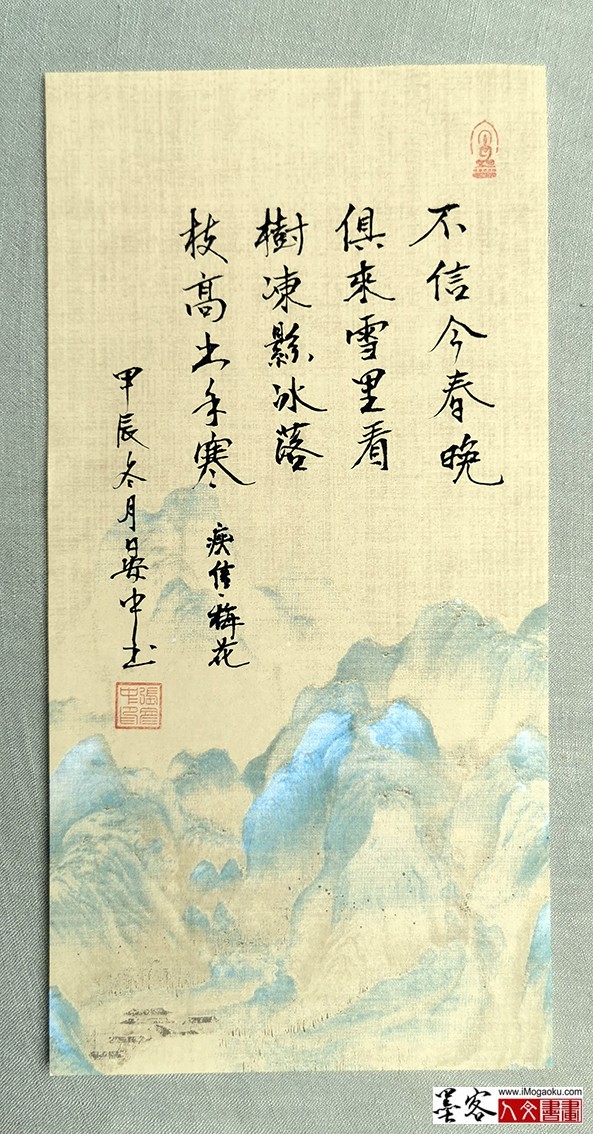 不信今春晚
俱來雪里看
樹凍縣冰落
枝高出手寒
庾信·梅花
甲辰冬月晏中书
張晏中印
墨客
www.iMogaoku.com
人文書畫